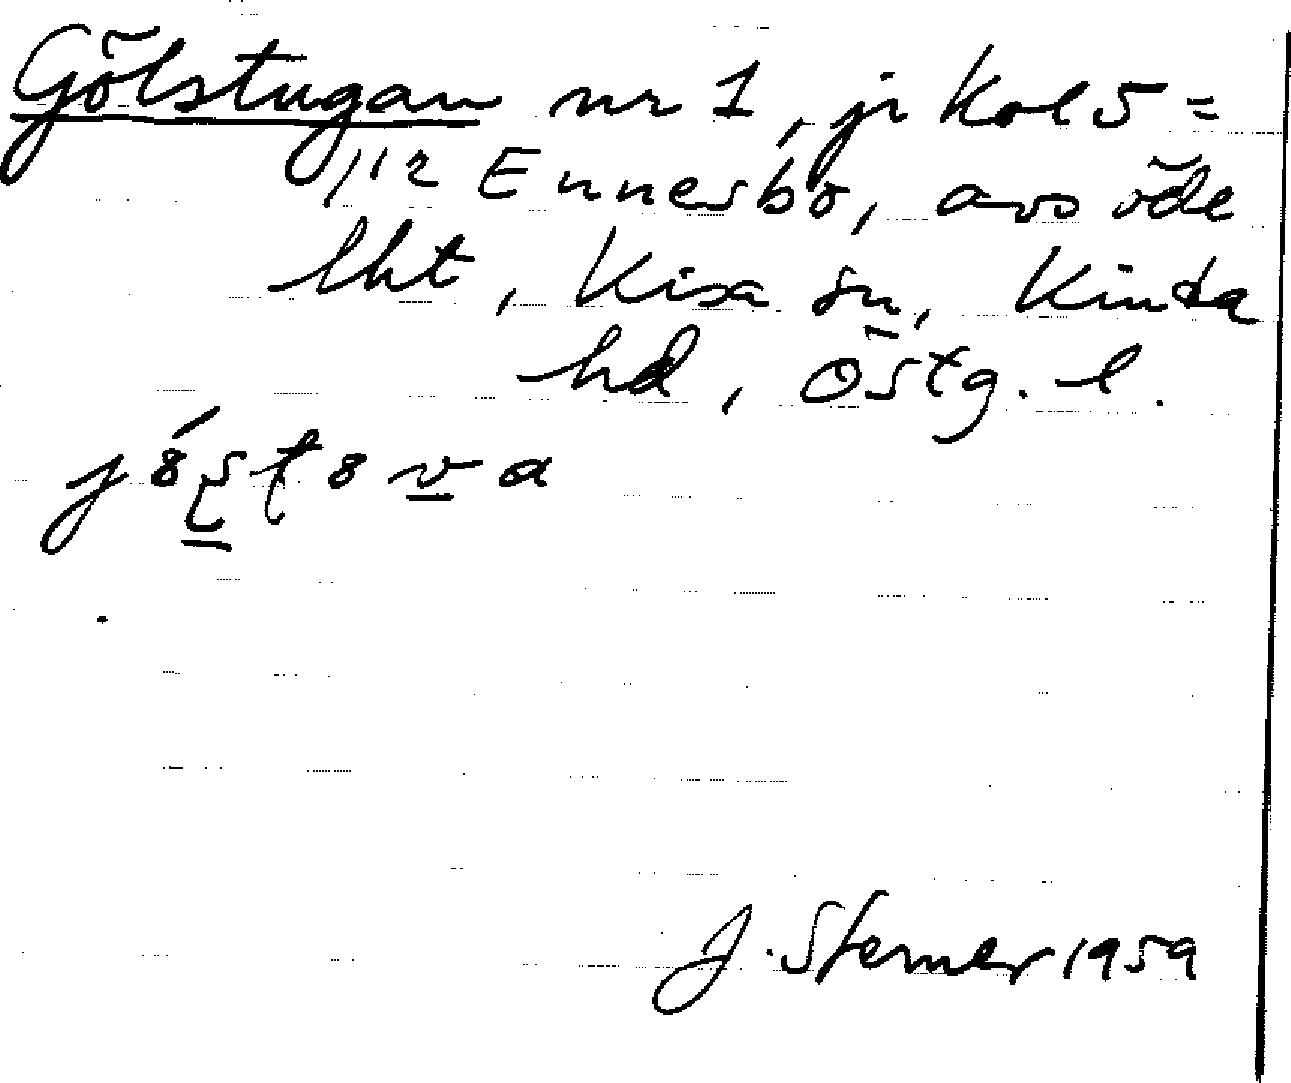 Gölstugan nr 1, ji Kol 5 =
112 Ennerbo, avs öde
lht, Kisa sn, Kinda
hd, Östg. l.
J. Sterner 1959